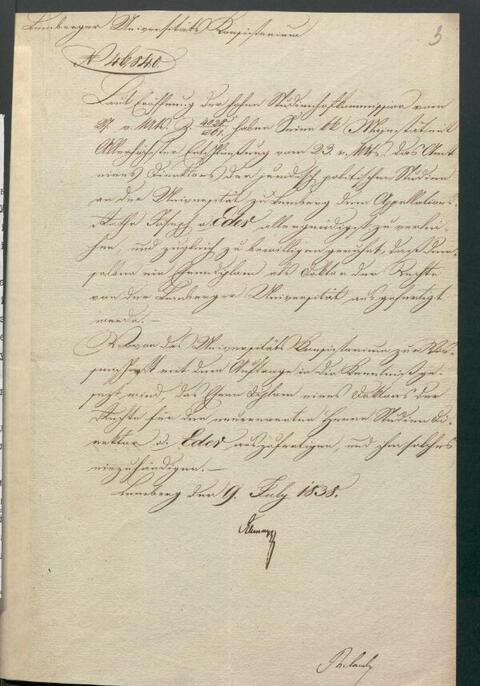 Lemberger Universitäts Konsistorium
3
N 46840.
Laut Eröffnung der hohen Studienhofkommission vom
v. M. Z. haben Seine kk Majestät mit
Allerhöchster Entschließung vom 23. v. Mts. das Amt
eines Direktors der juridisch politischen Studien
an der Universität zu Lemberg dem Appellations-
Rathe Joseph v. Eder allergnädigst zu verlei-
hen, und zugleich zu bewilligen geruhet, daß dem-
selben ein Ehrendiplom als Doktor der Rechte
von der Lemberger Universität ausgefertigt
werde.—
Wovon das Universitäts Konsistorium zur Wis-
senschaft mit dem Auftrage in die Kenntniß ge-
setzt wird, das Ehren Diplom eines Doktors der
Rechte für den neuernannten Herrn Studien Di-
rektor v. Eder auszufertigen, und ihm solches
einzuhändigen.—
Lemberg den 9. July 1838.